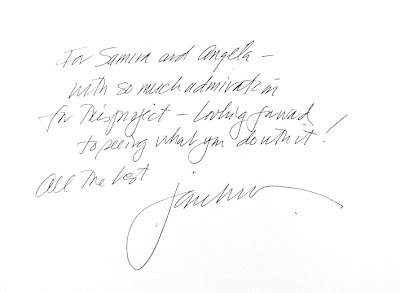 For Samina and Angela –
with so much admiration
for this project – looking forward
to seeing what you do with it!
All the best